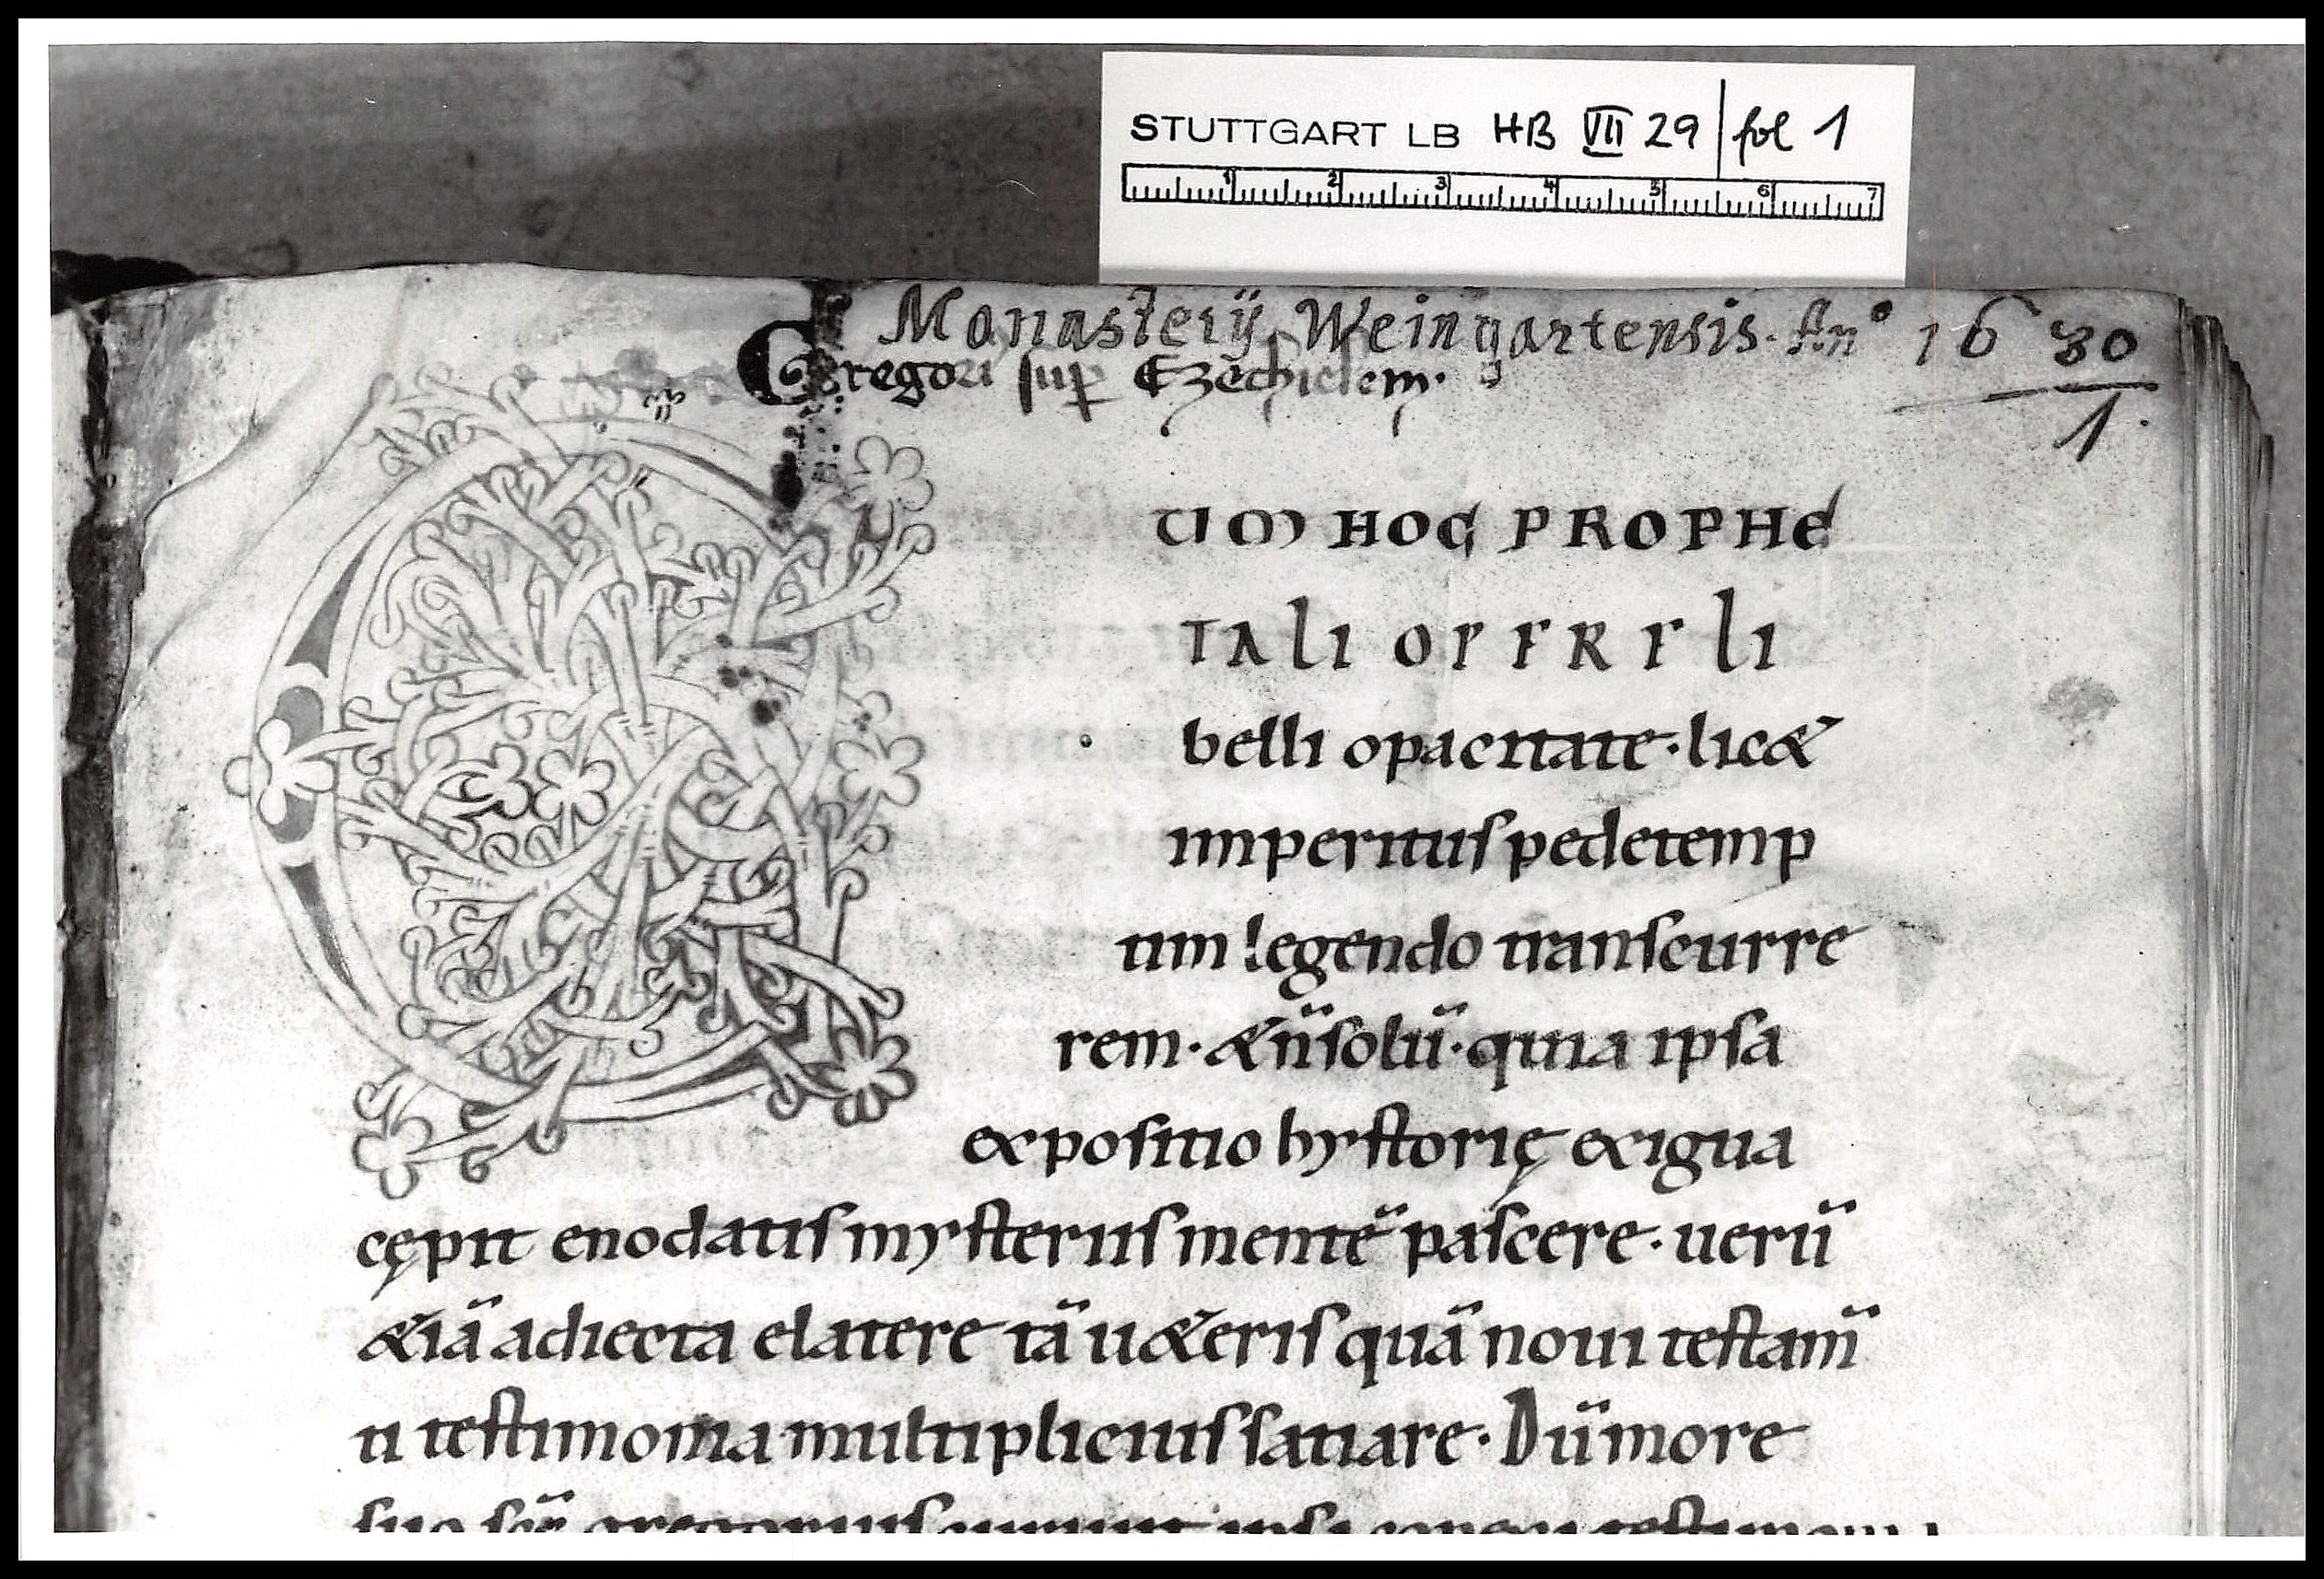 STUTTGART LB HB VII 29 | fol 1
1 2 3 4 5 6 7
Monasterÿ Weingartensis. Anº 1680
Gregori sup̱ Ezechielem.
1.
UM HOC PROPHE
TALI OPERE LI
belli opacitate·lic&
imperitus pedetemp
tim legendo transcurre
rem· &n̄ solū· quia ipsa
expositio hystorię exigua
cępit enodatis mysteriis mentē pascere· uerū
&iā adiecta elatere tā u&eris quā noui testam̄
ti testimonia multiplicius satiare· Dū more